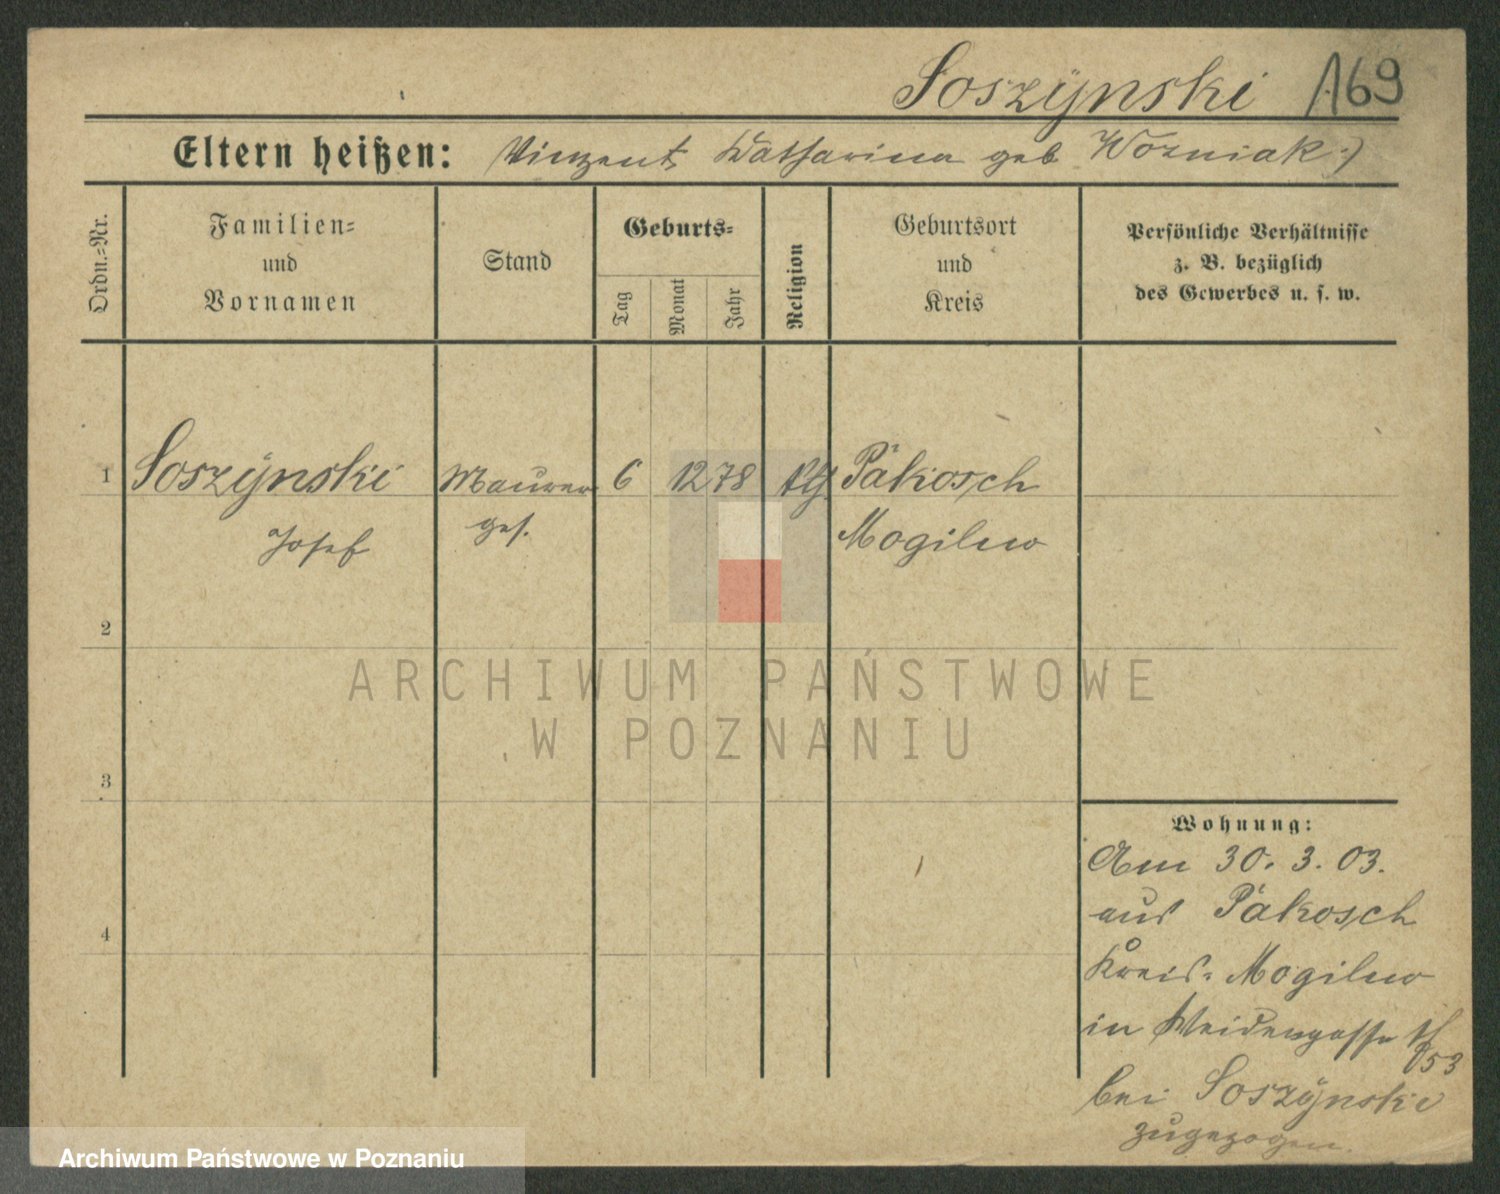 Soszÿnski 169
Eltern heißen: Vinzent, Katharina geb Wozniak.)
Ordn.=Nr.
Familien=
und
Vornamen
Stand
Geburts=
Tag
Monat
Jahr
Religion
Geburtsort
und
Kreis
Persönliche Verhältnisse
z. B. bezüglich
des Gewerbes u. s. w.
1 Soszÿnski Maurer 6 12 78 Päkosch
Josef ges. Mogilno
2
3
4
Wohnung:
Am 30. 3. 03.
aus Päkosch
Kreis. Mogilno
in Weidengasse
53
bei Soszÿnski
zugezogen.
ARCHIWUM PAŃSTWOWE
W POZNANIU
Archiwum Państwowe w Poznaniu